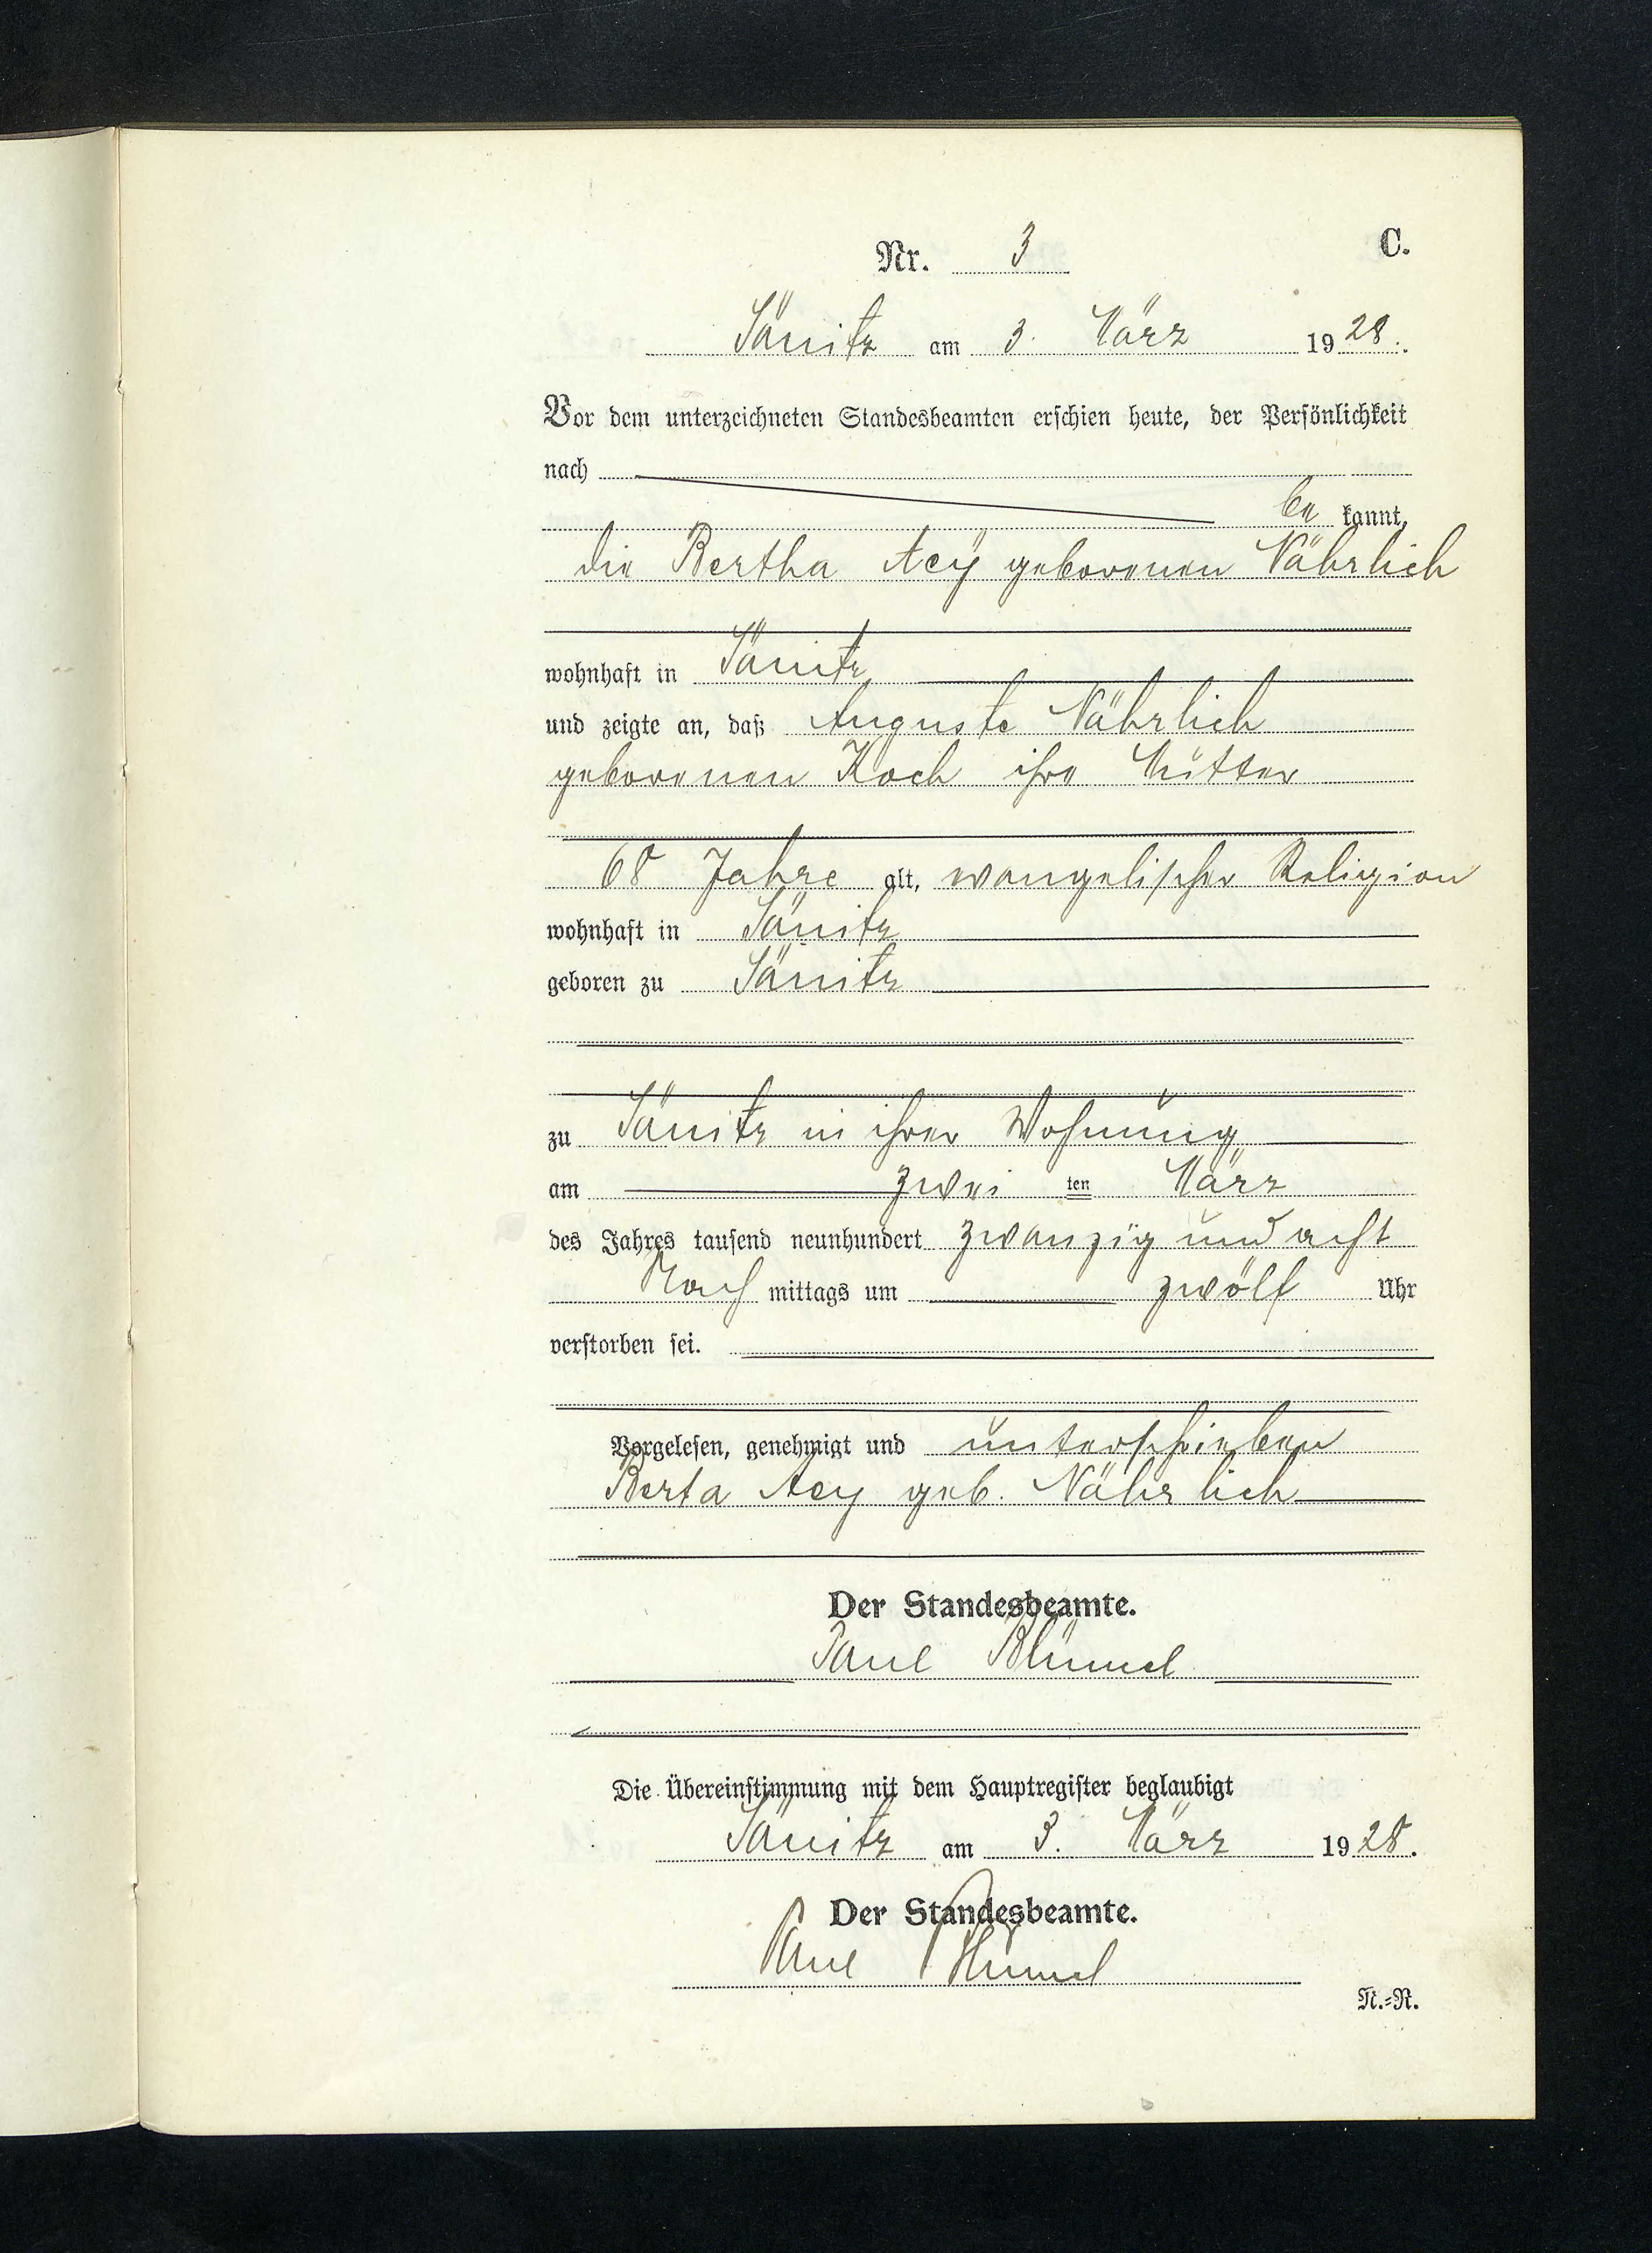 Nr. 3 C.
Sänitz am 3. März 1928.
Vor dem unterzeichneten Standesbeamten erschien heute, der Persönlichkeit
nach
be kannt,
die Bertha Aey geborenen Nährlich
wohnhaft in Sänitz
und zeigte an, daß Auguste Nährlich
geborenen Koch ihre Mutter
68 Jahre alt, evangelischer Religion
wohnhaft in Sänitz
geboren zu Sänitz
zu Sänitz in ihrer Wohnung
am zwei ten März
des Jahres tausend neunhundert zwanzig und acht
Nach mittags um zwölf Uhr
verstorben sei.
Vorgelesen, genehmigt und unterschrieben
Berta Aey geb. Nährlich
Der Standesbeamte.
Paul Blümel
Die Übereinstimmung mit dem Hauptregister beglaubigt
Sänitz am 3. März 1928.
Der Standesbeamte.
Paul Blümel
N.=R.